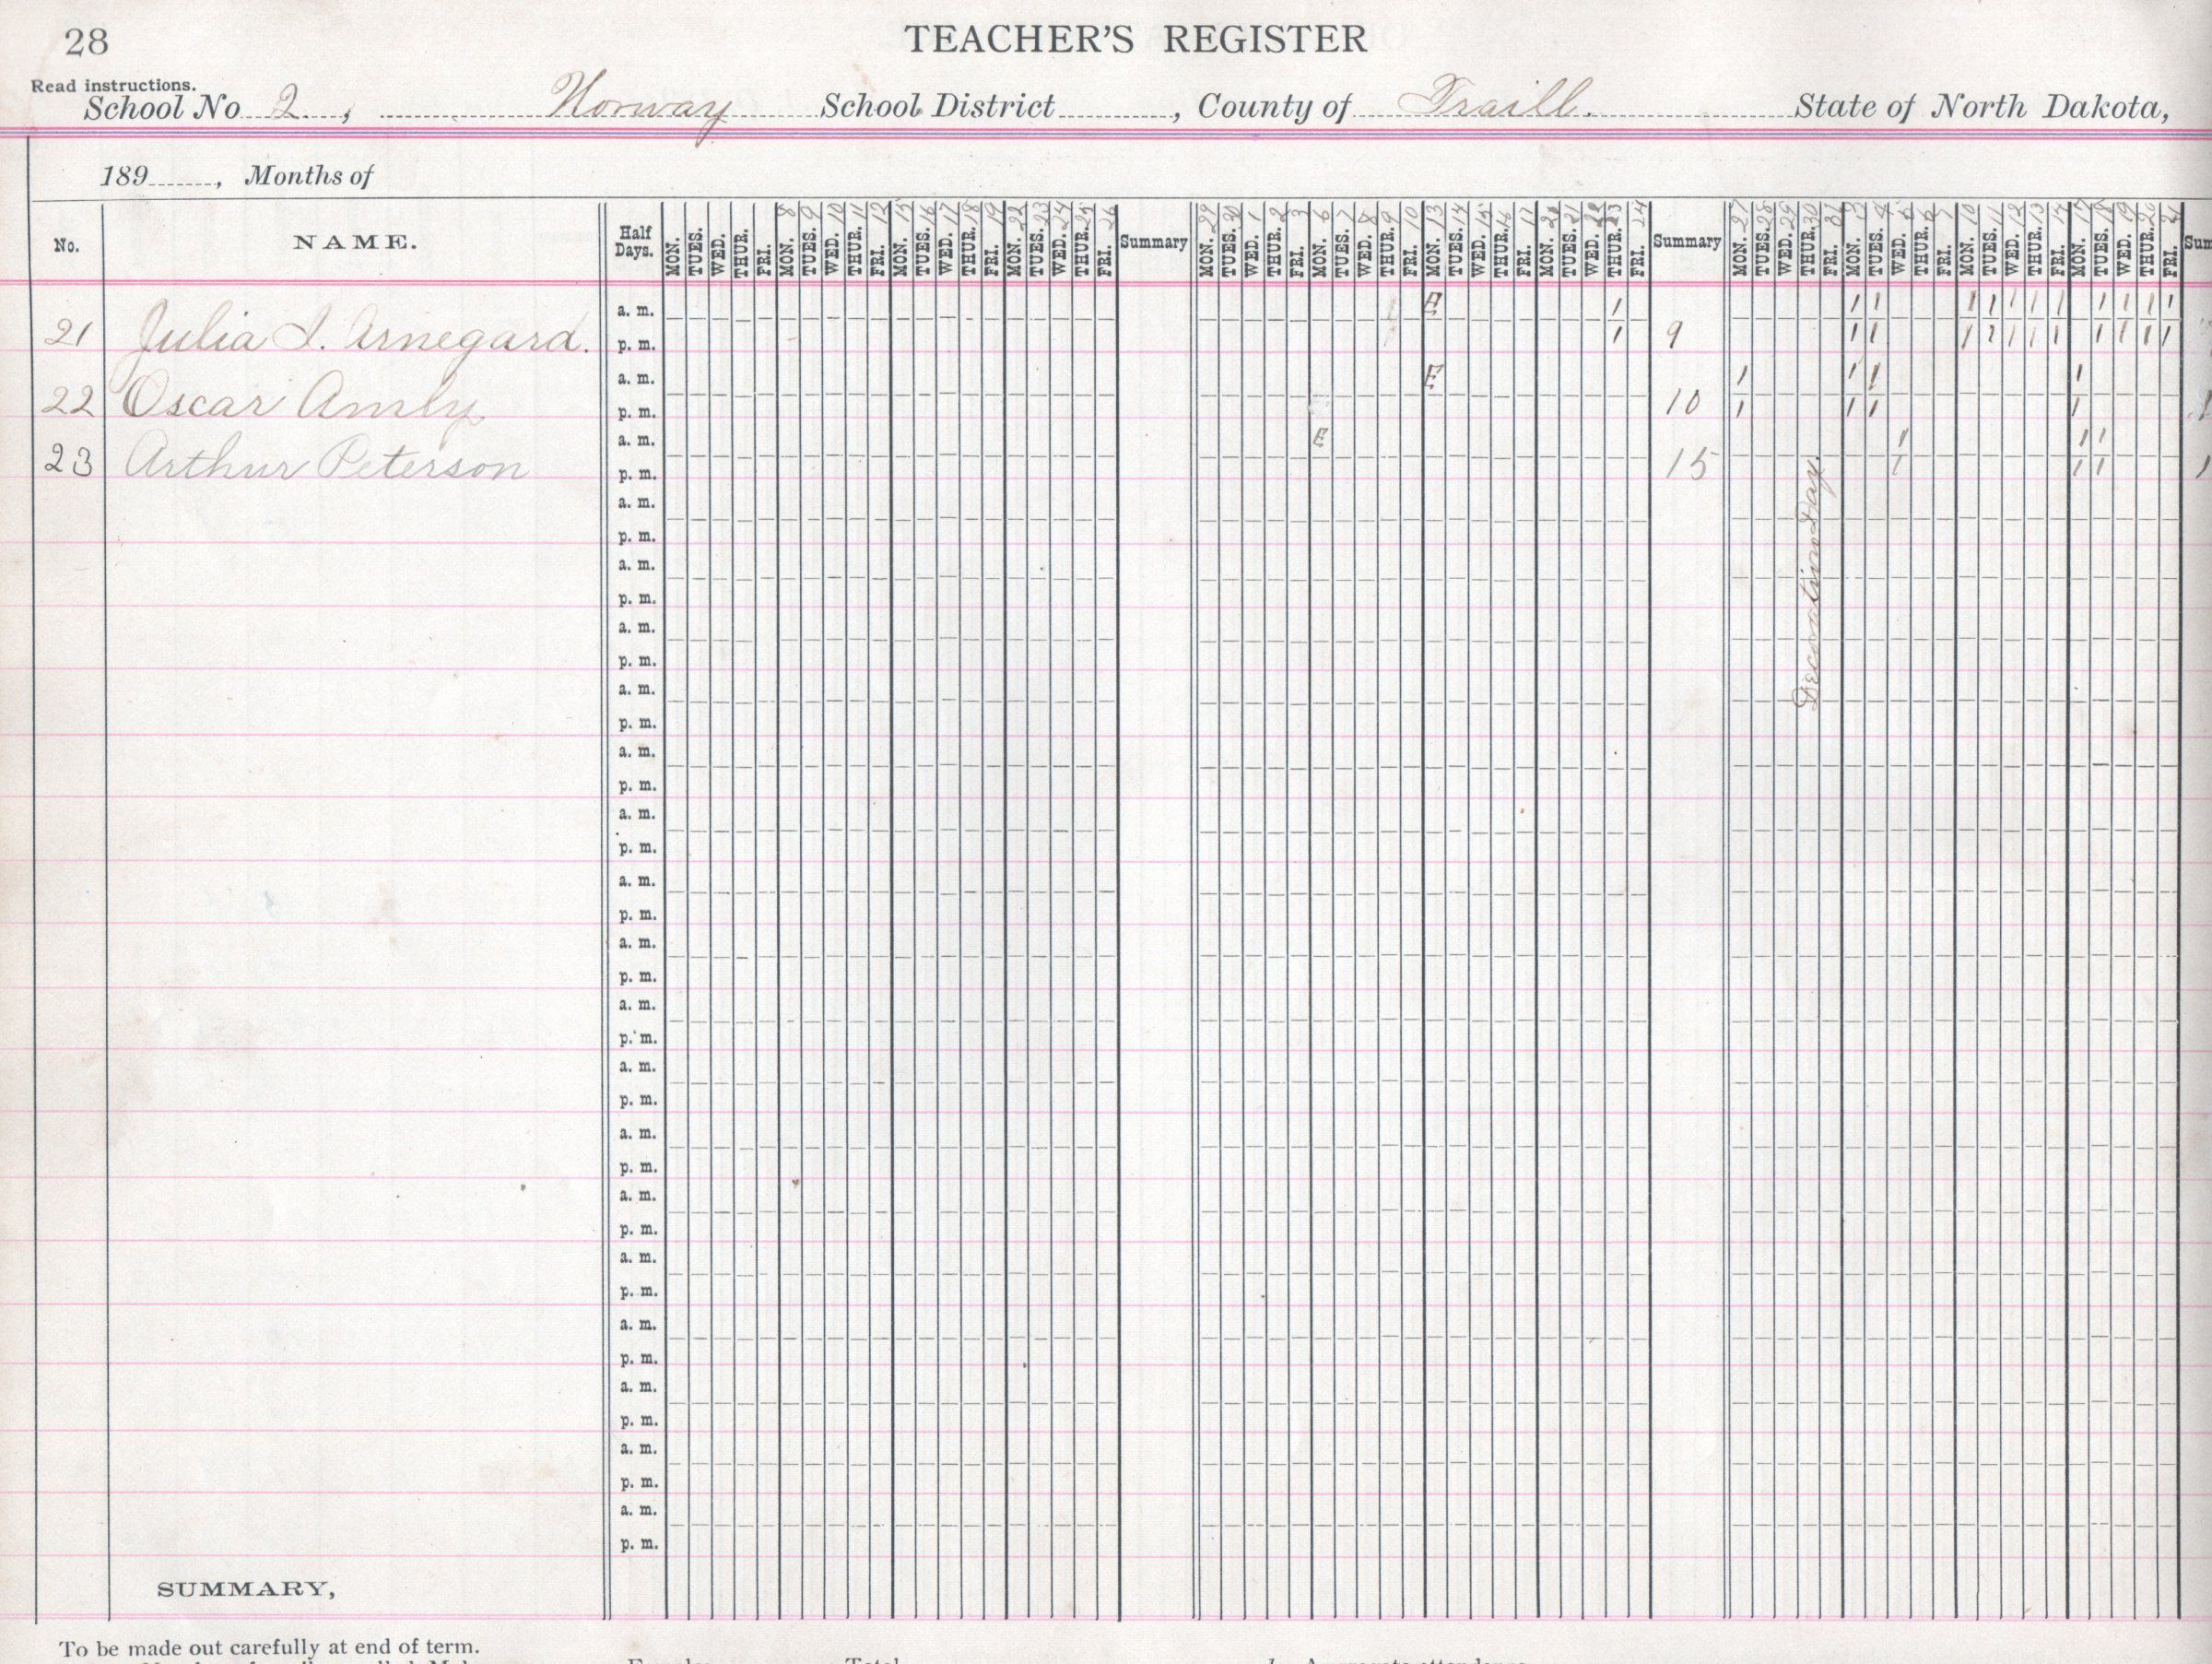 28
TEACHER'S REGISTER
Read instructions.
School No 2, Norway School District, County of Traill. State of North Dakota,
189, Months of
No. NAME. Half Days. MON. TUES. WED. THUR. FRI. MON. 8 TUES. 9 WED. 10 THUR. 11 FRI. 12 MON. 15 TUES. 16 WED. 17 THUR. 18 FRI. 19 MON. 22 TUES. 23 WED. 24 THUR. 25 FRI. 26 Summary MON. 29 TUES. 30 WED. 1 THUR. 2 FRI. 3 MON. 6 TUES. 7 WED. 8 THUR. 9 FRI. 10 MON. 13 TUES. 14 WED. 15 THUR. 16 FRI. 17 MON. 20 TUES. 21 WED. 22 THUR. 23 FRI. 24 Summary MON. 27 TUES. 28 WED. 29 THUR. 30 FRI. 31 MON. 3 TUES. 4 WED. 5 THUR. 6 FRI. 7 MON. 10 TUES. 11 WED. 12 THUR. 13 FRI. 14 MON. 17 TUES. 18 WED. 19 THUR. 20 FRI. 21 Sum
a. m. E
21 Julia I. Arnegard. p. m. 9
a. m. E
22 Oscar Amly p. m. 10
a. m. E
23 Arthur Peterson p. m. 15
Decoration Day.
a. m.
p. m.
a. m.
p. m.
a. m.
p. m.
a. m.
p. m.
a. m.
p. m.
a. m.
p. m.
a. m.
p. m.
a. m.
p. m.
a. m.
p. m.
a. m.
p. m.
a. m.
p. m.
a. m.
p. m.
a. m.
p. m.
a. m.
p. m.
a. m.
p. m.
a. m.
p. m.
a. m.
p. m.
SUMMARY,
To be made out carefully at end of term.